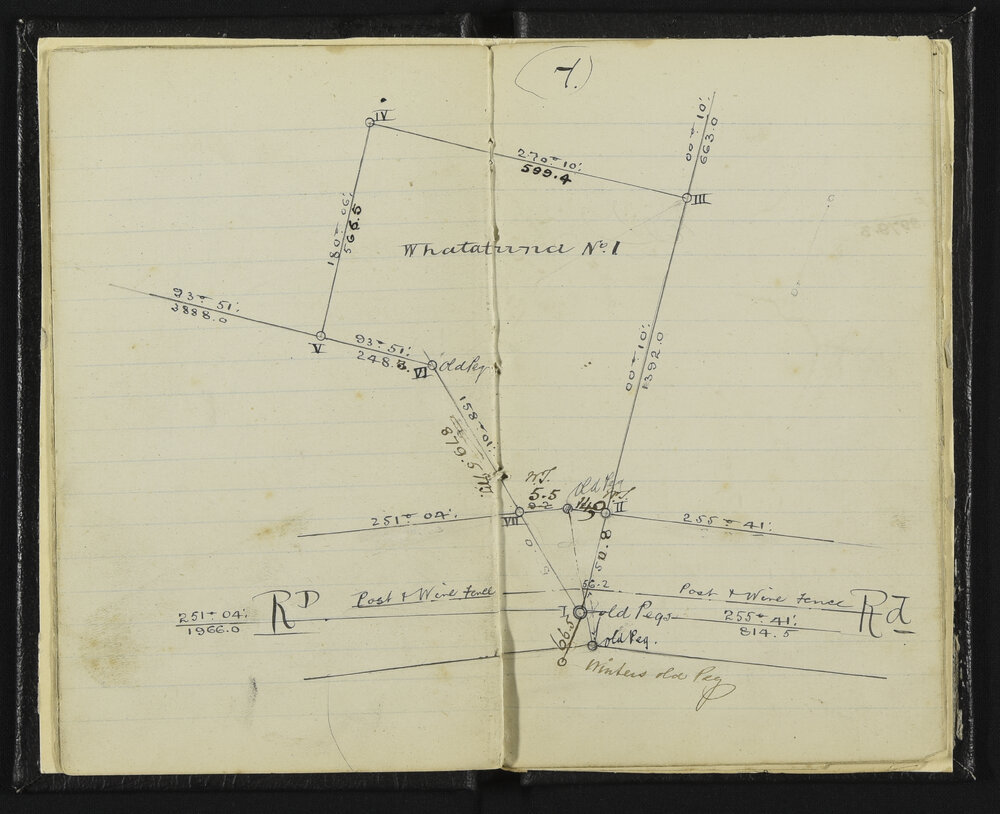 7.
IV
00° 10'
663.0
270° 10'
599.4
III
180° 06'
565.5
Whatatuna No. 1
93° 51'
3888.0
V
93° 51'
248.3
VI
Old Peg
00° 10'
1392.0
158° 10'
879.5
W.T.
5.5
Old Peg
W.T.
VII
II
251° 04'
255° 41'
50.8
56.2
Post & Wire Fence
Post & Wire Fence
251° 04'
1966.0
RD
I
old Pegs
255° 41'
814.5
Rd
66.5
old Peg.
Winters old Peg